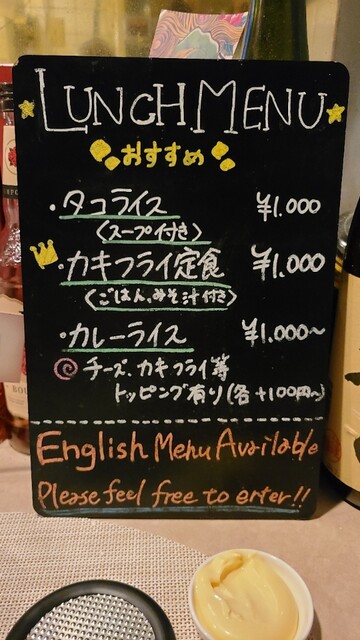 LUNCH.MENU
おすすめ
・タコライス ¥1.000
〈スープ付き〉
・カキフライ定食 ¥1.000
〈ごはん、みそ汁付き〉
・カレーライス ¥1.000~
チーズ、カキフライ等
トッピング有り(各+100円~)
English Menu Available
Please feel free to enter!!